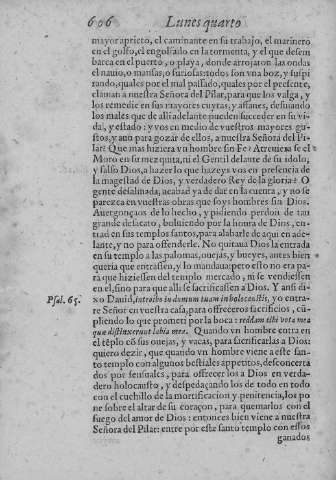 606 Lunes quarto
mayor aprieto, el caminante en su trabajo, el marinero
en el golfo, el engolfado en la tormenta, y el que desem
barca en el puerto, o playa, donde arrojaron las ondas
el nauio, o mansas, o furiosas: todos son vna boz, y suspi
rando, quales por el mal passado, quales por el presente,
claman a nuestra Señora del Pilar, para que los valga, y
los remedie en sus mayores cuytas, y afanes, desuiando
los males que de alli adelante pueden suceder en su vi-
da, y estado: y vos en medio de vuestros mayores gu-
stos, y aun para gozar de ellos, a nuestra Señora del Pi-
lar? Que mas hiziera vn hombre sin Fe? Atreuiera se el
Moro en su mezquita, ni el Gentil delante de su idolo,
y falso Dios, a hazer lo que hazeys vos en presencia de
la magestad de Dios, y verdadero Rey de la gloria? O
gente desalinada, acabad ya de dar en la cuenta, y no se
parezca en vuestras obras que soys hombres sin Dios.
Auergonçaos de lo hecho, y pidiendo perdon de tan
grande desacato, boluiendo por la honra de Dios, en-
trad en sus templos santos, para alabarle de aqui en ade-
lante, y no para offenderle. No quitaua Dios la entrada
en su templo a las palomas, ouejas, y bueyes, antes bien
queria que entrassen, y lo mandaua; pero esto no era pa-
ra que hiziessen del templo mercado, ni se vendiessen
en el, sino para que alli se sacrificassen a Dios. Y ansi di-
Psal. 65. xo Dauid, introibo in domum tuam in holocaustis, yo entra-
re Señor en vuestra casa, para offreceros sacrificios, cū-
pliendo lo que prometi por la boca: reddam tibi vota mea
quæ distinxerunt labia mea. Quando vn hombre entra en
el tēplo cō sus ouejas, y vacas, para sacrificarlas a Dios:
quiero dezir, que quando vn hombre viene a este san-
to templo con algunos bestiales appetitos, desconcerta
dos por sensuales, para offrecer los a Dios en verda-
dero holocausto, y despedaçando los de todo en todo
con el cuchillo de la mortificacion y penitencia, los po
ne sobre el altar de su coraçon, para quemarlos con el
fuego del amor de Dios: entonces bien viene a nuestra
Señora del Pilar: entre por este santo templo con essos
ganados